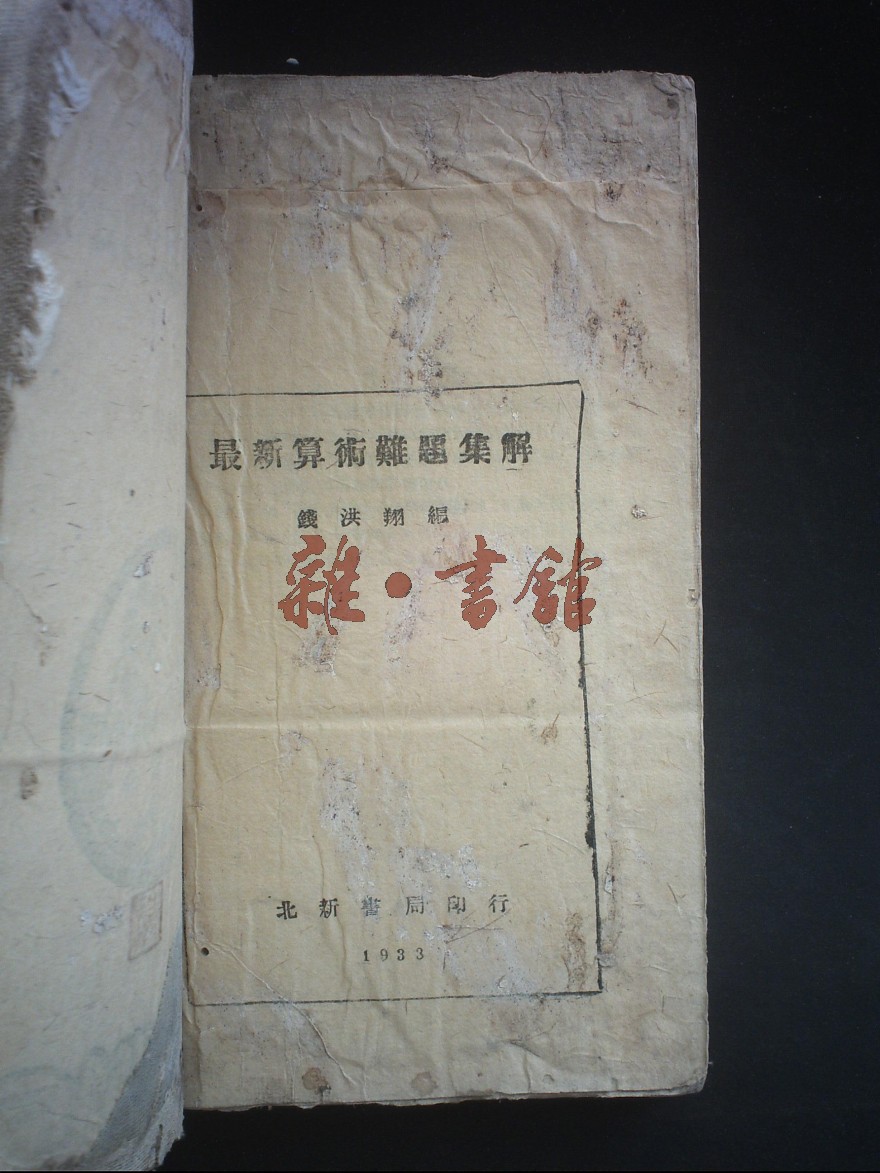 最新算術難題集解
錢洪翔編
雜·書館
北新書局印行
1933